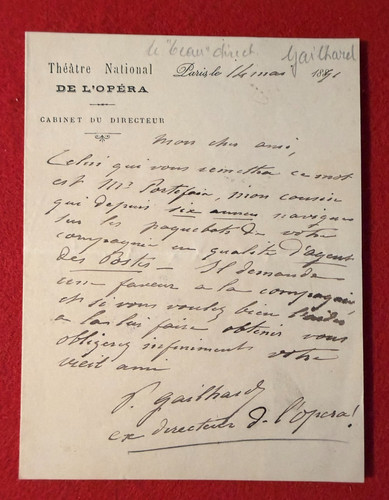 Gailhard
Théâtre National
DE L'OPÉRA
CABINET DU DIRECTEUR
Paris, le 14 mai 1891
Mon cher ami,
Celui qui vous remettra ce mot
est Mr Portefaix, mon cousin
qui depuis six années navigue
sur les paquebots de votre
compagnie en qualité d'agent
des Postes — Il demande
une faveur a la compagnie
et si vous voulez bien l'aider
a la lui faire obtenir vous
obligerez infiniment votre
vieil ami
P. Gailhard
ex directeur de l'Opera!